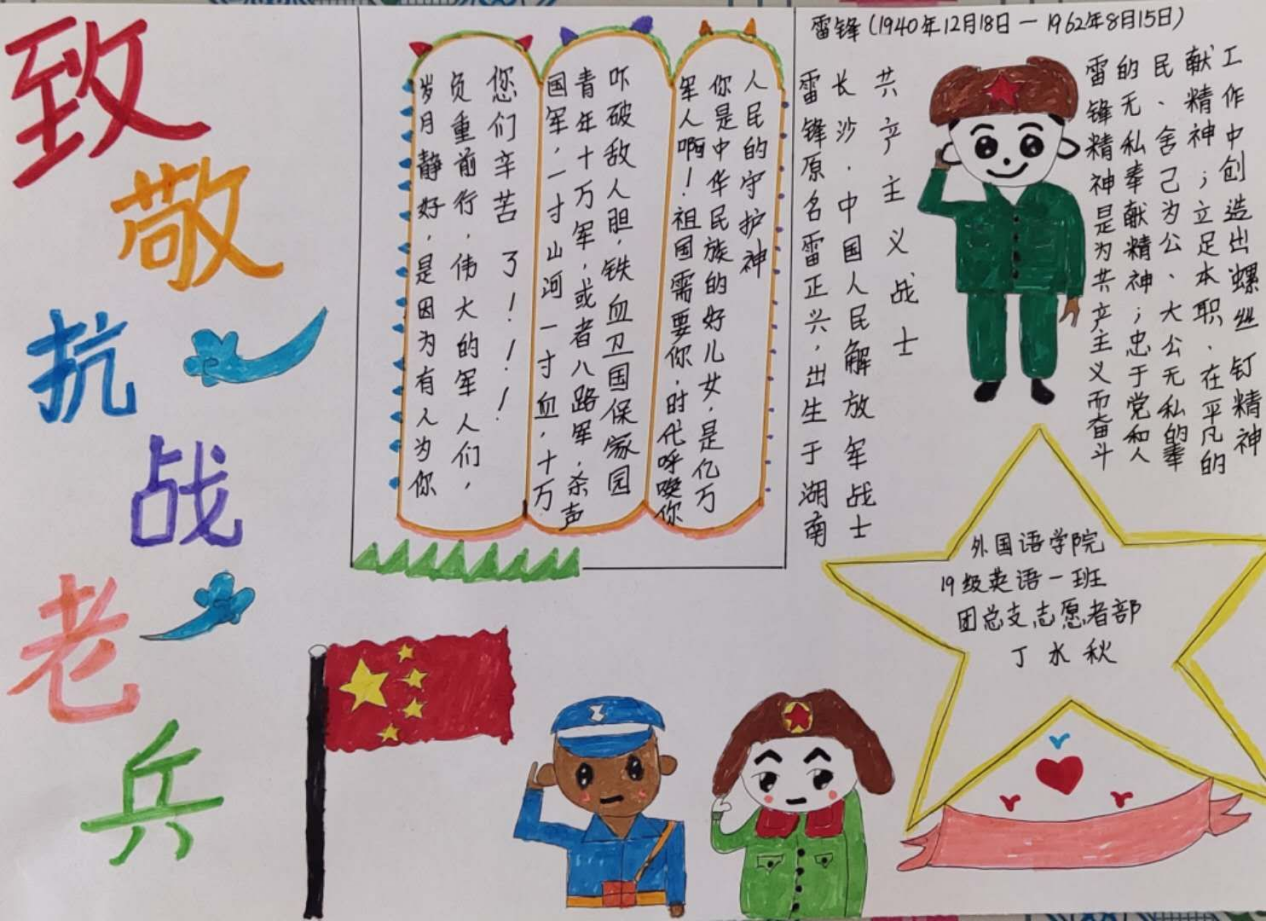 致敬抗战老兵
岁月静好，是因为有人为你
负重前行，伟大的军人们，
您们辛苦了！！！！
国军，一寸山河一寸血，十万
青年十万军，或者八路军，杀声
吓破敌人胆，铁血卫国保家园
军人啊！祖国需要你，时代呼唤你
你是中华民族的好儿女，是亿万
人民的守护神
雷锋（1940年12月18日—1962年8月15日）
雷锋原名雷正兴，出生于湖南
长沙，中国人民解放军战士
共产主义战士
雷锋精神是为共产主义而奋斗
的无私奉献精神；忠于党和人
民、舍己为公、大公无私的奉
献精神；立足本职、在平凡的
工作中创造出螺丝钉精神
外国语学院
19级英语一班
团总支志愿者部
丁水秋